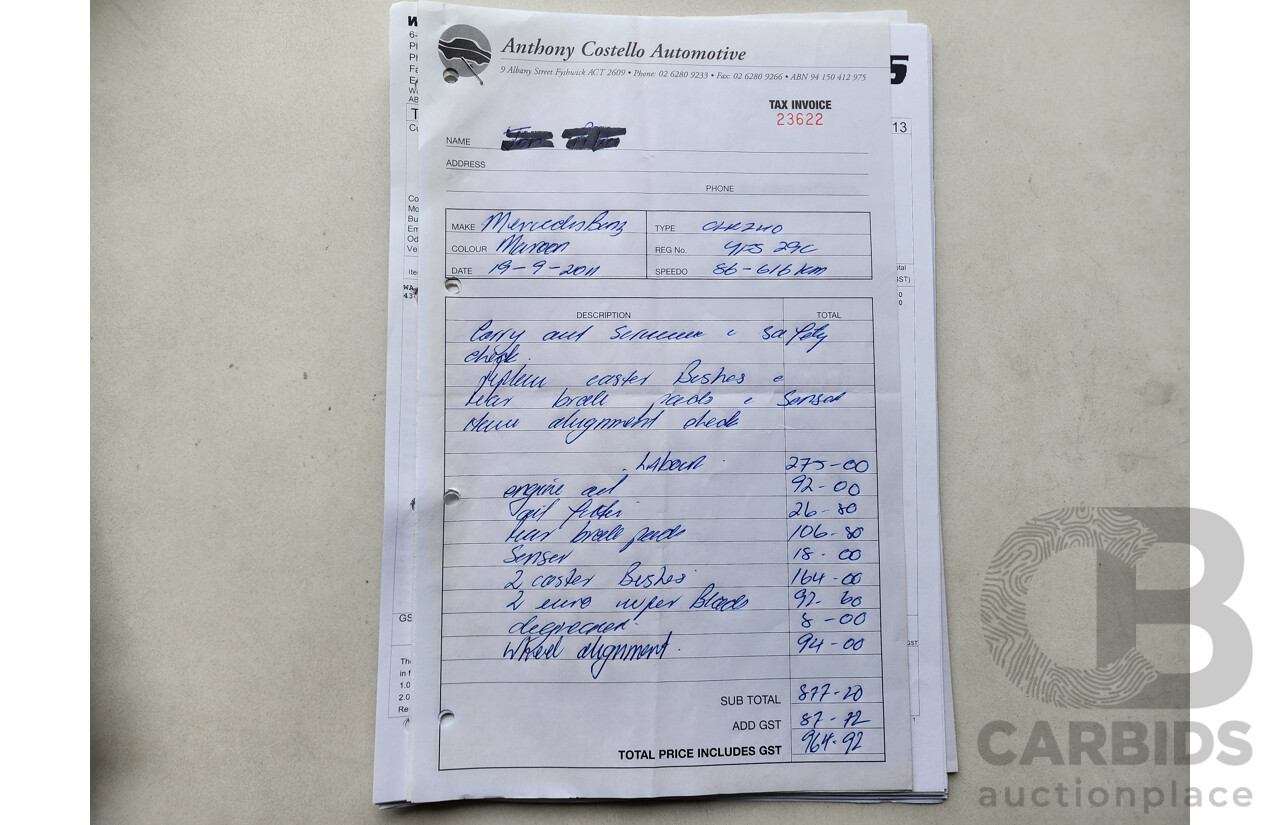 Anthony Costello Automotive
9 Albany Street Fyshwick ACT 2609 • Phone: 02 6280 9233 • Fax: 02 6280 9266 • ABN 94 150 412 975
TAX INVOICE
23622
NAME
ADDRESS
PHONE
MAKE Mercedes Benz TYPE CLK240
COLOUR Maroon REG No. YFS 29C
DATE 19-9-2011 SPEEDO 86-616 km
DESCRIPTION TOTAL
Carry out service & safety
check.
replace caster Bushes &
rear brake pads & Sensor
wheel alignment check
Labour 275-00
engine oil 92-00
oil filter 26-80
rear brake pads 106-80
Senser 18-00
2 caster Bushes 164-00
2 euro wiper Blades 92-60
degreaser 8-00
Wheel alignment 94-00
SUB TOTAL 877-20
ADD GST 87-72
TOTAL PRICE INCLUDES GST 964-92
13
GS
The
in t
1.0
2.0
Re
CB
CARBIDS
auctionplace